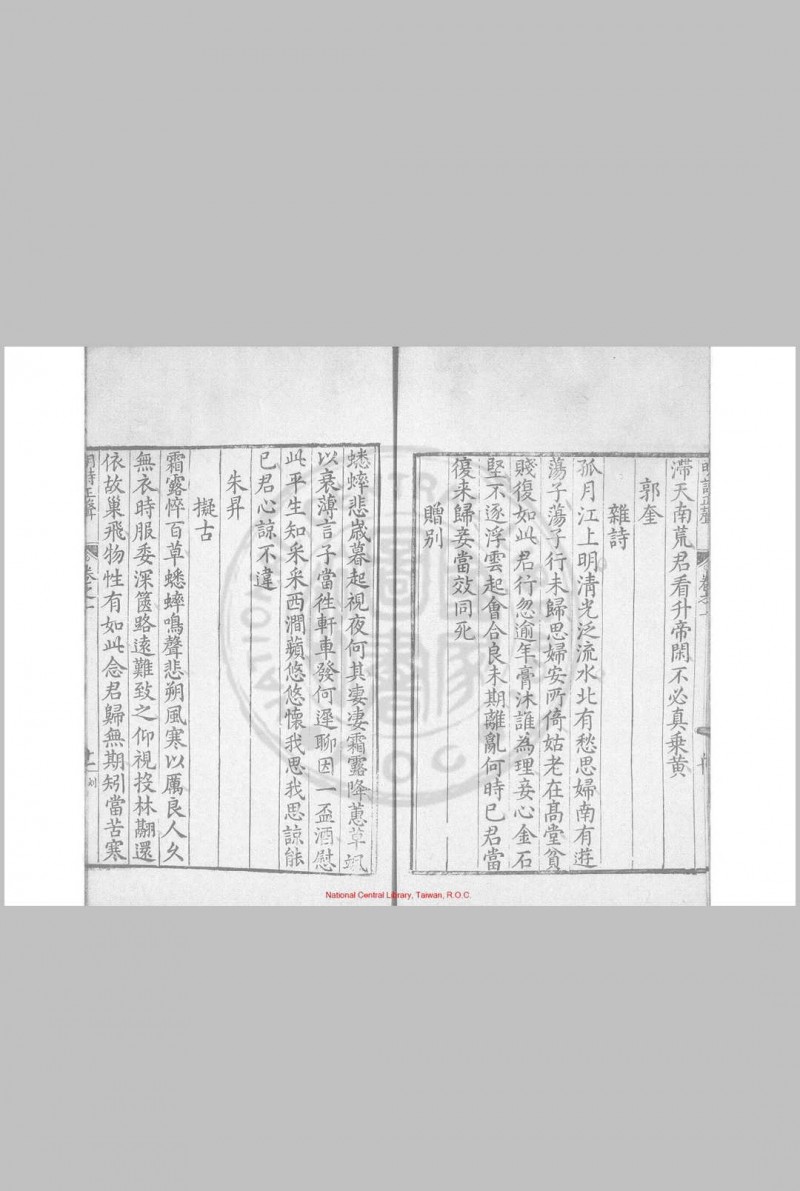 滯天南荒君看升帝閑不必真乗黄
郭奎
雜詩
孤月江上明清光泛流水北有愁思婦南有遊
蕩子蕩子行未歸思婦安所倚姑老在髙堂貧
賤復如此君行忽逾年膏沐誰為理妾心金石
堅不逐浮雲起會合良未期離亂何時已君當
復来歸妾當效同死
贈别
蟋蟀悲歳暮起視夜何其凄凄霜露降蕙草颯
以衰薄言子當徃軒車發何遲聊因一盃酒慰
此平生知采采西澗蘋悠悠懷我思我思諒能
已君心諒不違
朱昇
擬古
霜露悴百草蟋蟀鳴聲悲朔風寒以厲良人久
無衣時服委深篋路逺難致之仰視投林翮還
依故巢飛物性有如此念君歸無期矧當苦寒
明詩正聲 卷之一 十一 刘
National Central Library, Taiwan, R.O.C.